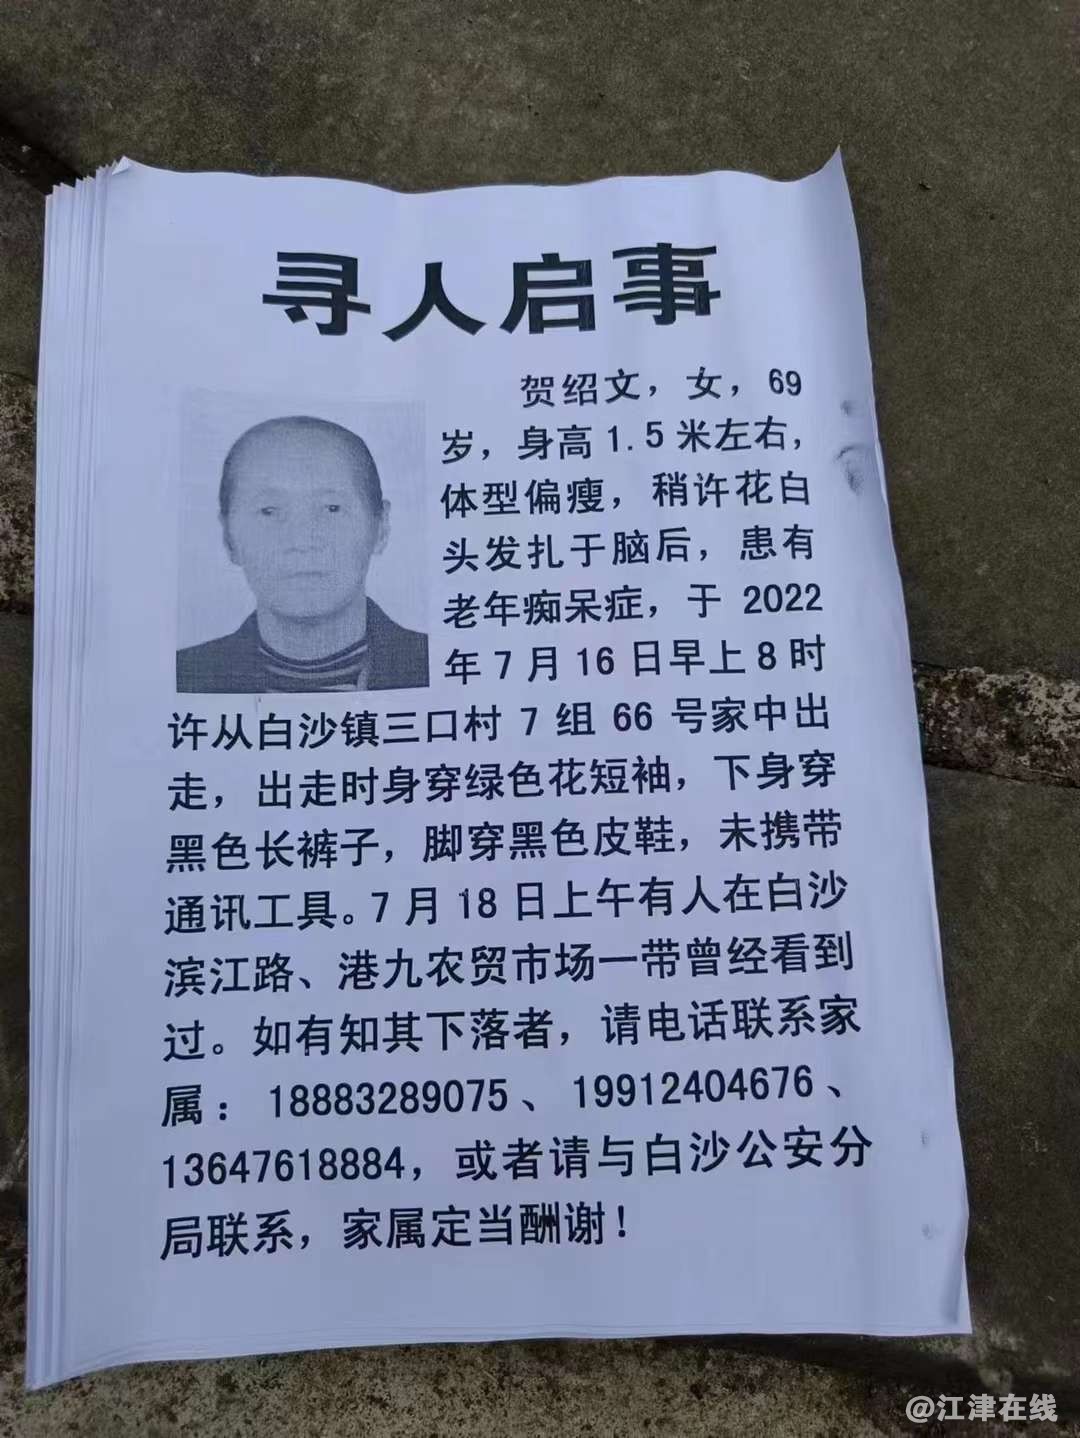 寻人启事
贺绍文，女，69
岁，身高1.5米左右，
体型偏瘦，稍许花白
头发扎于脑后，患有
老年痴呆症，于 2022
年7月16日早上8时
许从白沙镇三口村 7 组 66 号家中出
走，出走时身穿绿色花短袖，下身穿
黑色长裤子，脚穿黑色皮鞋，未携带
通讯工具。7月18日上午有人在白沙
滨江路、港九农贸市场一带曾经看到
过。如有知其下落者，请电话联系家
属：18883289075、19912404676、
13647618884，或者请与白沙公安分
局联系，家属定当酬谢！
@江津在线